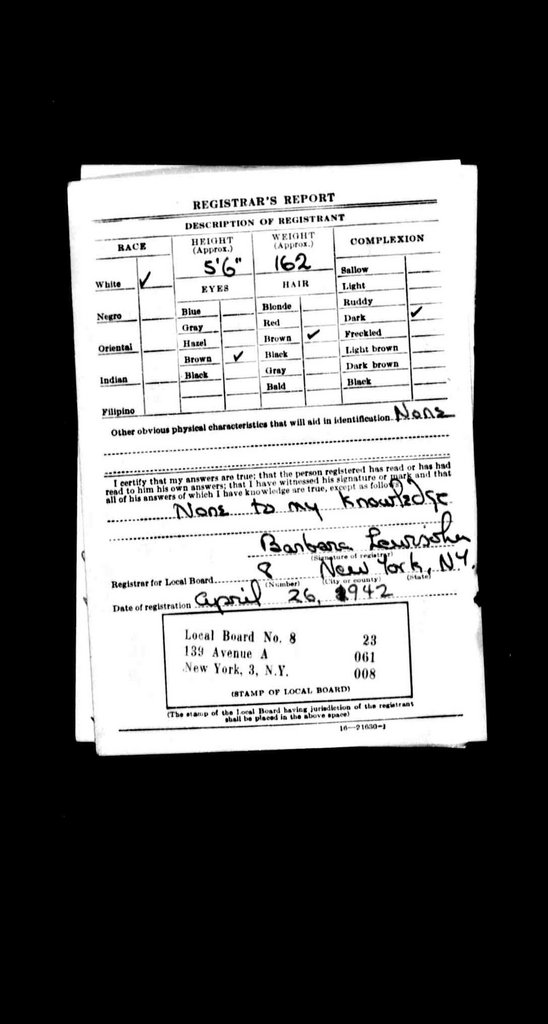 REGISTRAR'S REPORT
DESCRIPTION OF REGISTRANT
RACE
HEIGHT (Approx.)
WEIGHT (Approx.)
COMPLEXION
5'6"
162
White ✓
Negro
Oriental
Indian
Filipino
EYES
Blue
Gray
Hazel
Brown ✓
Black
HAIR
Blonde
Red
Brown ✓
Black
Gray
Bald
Sallow
Light
Ruddy
Dark ✓
Freckled
Light brown
Dark brown
Black
Other obvious physical characteristics that will aid in identification None
I certify that my answers are true; that the person registered has read or has had
read to him his own answers; that I have witnessed his signature or mark and that
all of his answers of which I have knowledge are true, except as follows:
None to my knowledge
Barbara Lewisohn
(Signature of registrar)
Registrar for Local Board 8 New York, N.Y.
(Number) (City or county) (State)
Date of registration April 26, 1942
Local Board No. 8 23
139 Avenue A 061
New York, 3, N.Y. 008
(STAMP OF LOCAL BOARD)
(The stamp of the Local Board having jurisdiction of the registrant
shall be placed in the above space)
16—21630-1